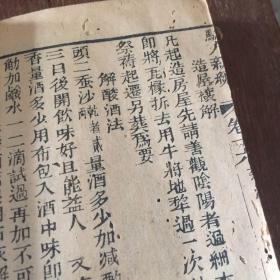 造屋樓解
凡起造房屋先請善觀陰陽者過細
即將瓦椽拆去用牛將地整過一次
祭禱起遷另葬爲要
解酸酒法
頭二蚕沙 乾者 量酒多少加減
三日後開飲味好且能益人 又
香量酒多少用布包入酒中味即
加鹹水一二滴試過再加不可